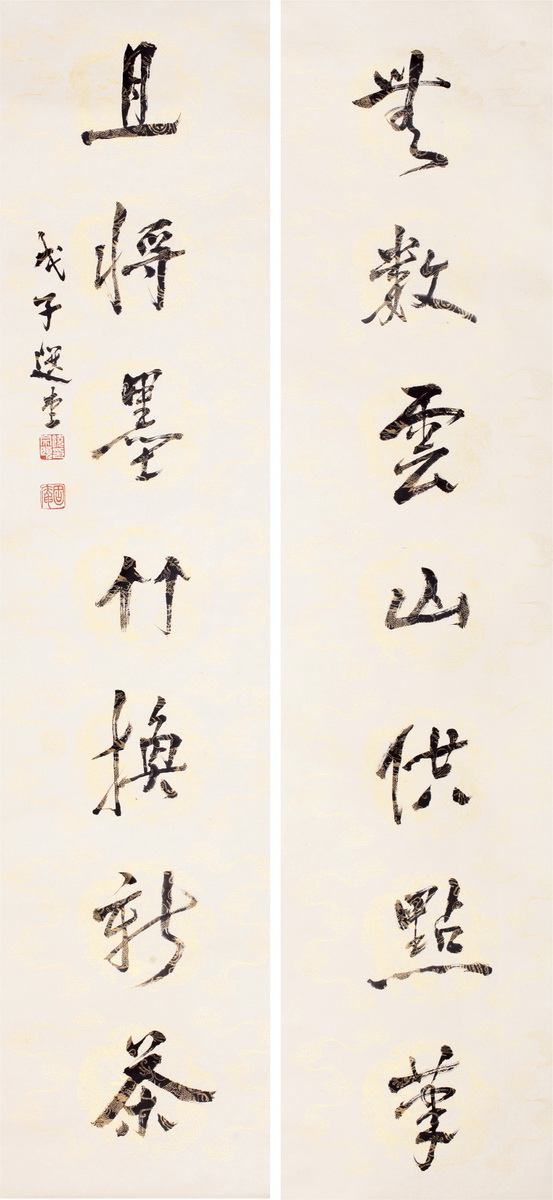 無數雲山供點筆
且將墨竹換新茶
戊子選堂